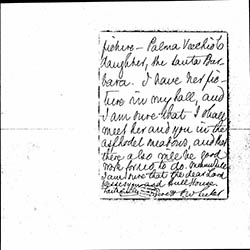 picture – Palma Vecchio's
daughter, the Santa Bar
bara. I have her pic-
ture in my hall, and
I am sure that I shall
meet her and you in the
asphodel meadows, and that
there also will be good
work for us to do. Meanwhile
I am sure that the dear Lord
blesses you and Hull House.